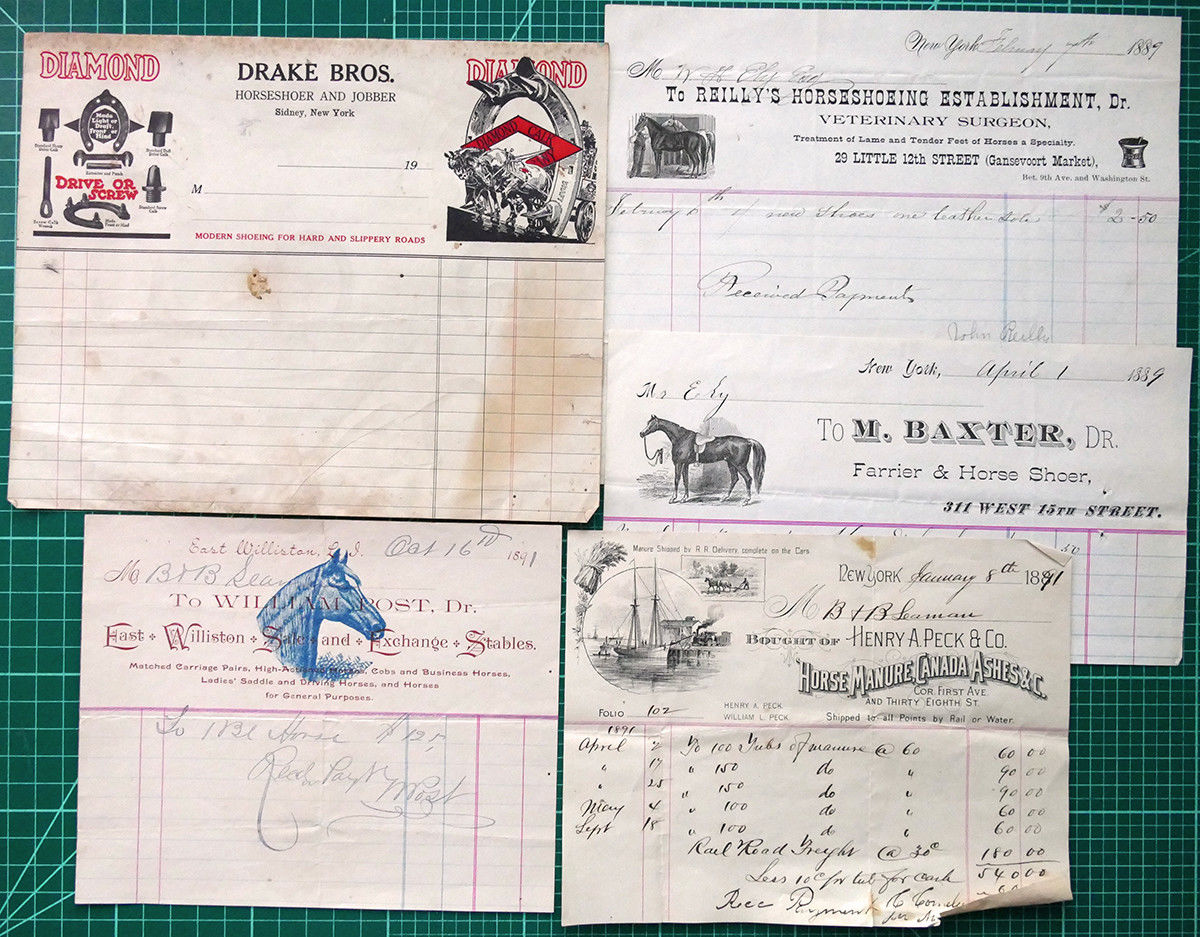 DIAMOND
Made
Light or
Draft,
Front or
Hind
DRIVE OR
SCREW
DRAKE BROS.
HORSESHOER AND JOBBER
Sidney, New York
19
M
MODERN SHOEING FOR HARD AND SLIPPERY ROADS
DIAMOND
DIAMOND CALK
New York February 1889
M
To REILLY'S HORSESHOEING ESTABLISHMENT, Dr.
VETERINARY SURGEON,
Treatment of Lame and Tender Feet of Horses a Specialty.
29 LITTLE 12th STREET (Gansevoort Market),
Bet. 9th Ave. and Washington St.
new shoes one leather sole $2-50
Received Payment
John Reilly
New York, April 1 1889
Mr
To M. BAXTER, DR.
Farrier & Horse Shoer,
311 WEST 15TH STREET.
50
East Williston, L.I. Oct 16 1891
M B & B Seaman
To WILLIAM POST, Dr.
East Williston Sale and Exchange Stables.
Matched Carriage Pairs, High-Action Horses, Cobs and Business Horses,
Ladies' Saddle and Driving Horses, and Horses
for General Purposes.
To 1 Bl Horse
WPost
Manure Shipped by R.R. Delivery, complete on the Cars
NEW YORK January 8th 1891
M B & B Seaman
BOUGHT OF HENRY A. PECK & CO.
HORSE MANURE, CANADA ASHES &C.
COR. FIRST AVE.
AND THIRTY EIGHTH ST.
FOLIO 102
HENRY A. PECK
WILLIAM L. PECK
Shipped to all Points by Rail or Water.
1891
April 2 To 100 Tubs of manure @ 60 60 00
" 17 " 150 do " 90 00
" 25 " 150 do " 90 00
May 4 " 100 do " 60 00
Sept 18 " 100 do " 60 00
Rail Road Freight @ 30c 180 00
Less 10c for tub for cash 540 00
Rec Payment